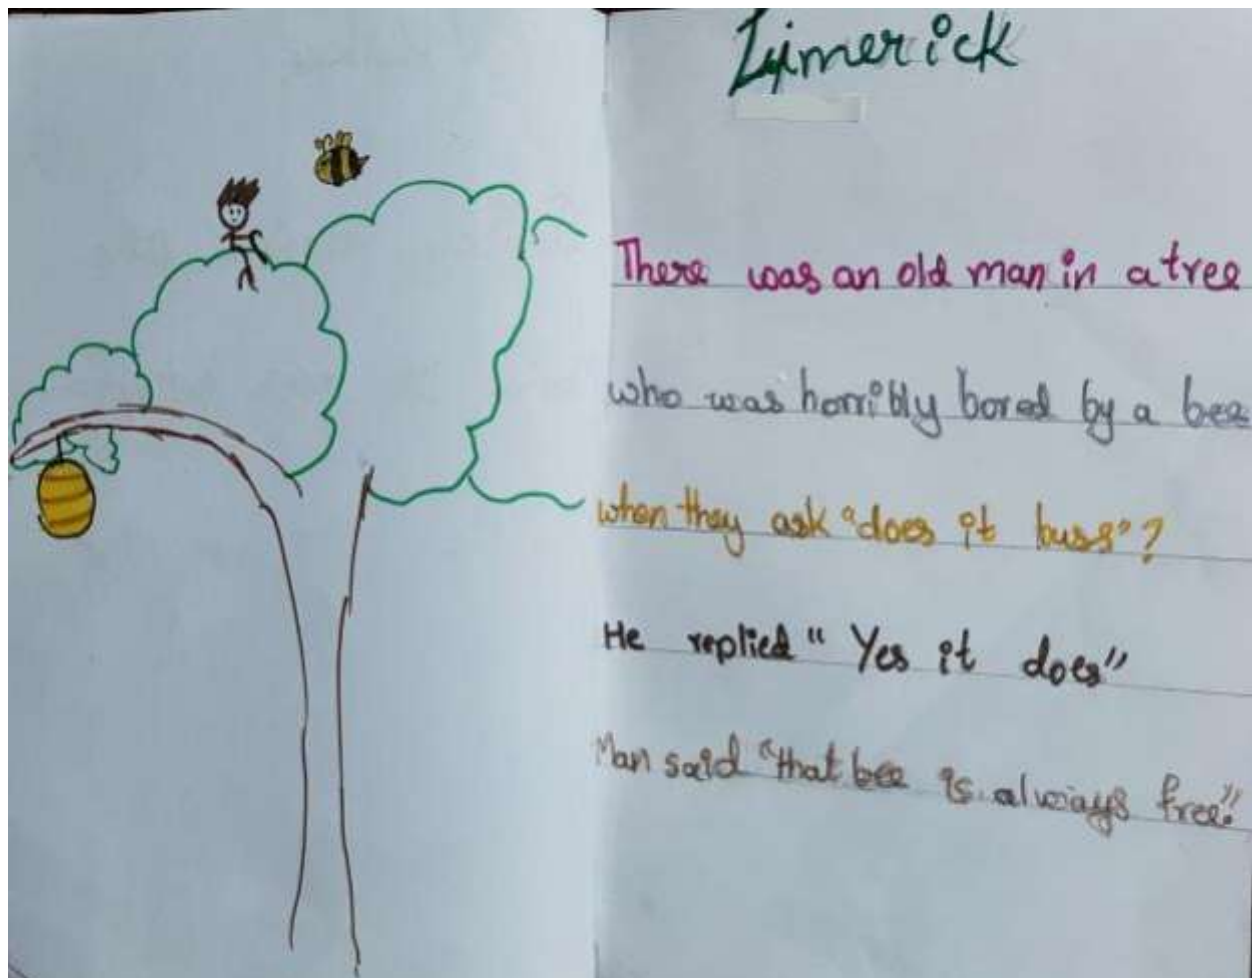 Limerick
There was an old man in a tree
who was horribly bored by a bee
when they ask "does it buss"?
He replied "Yes it does"
Man said "that bee is always free."